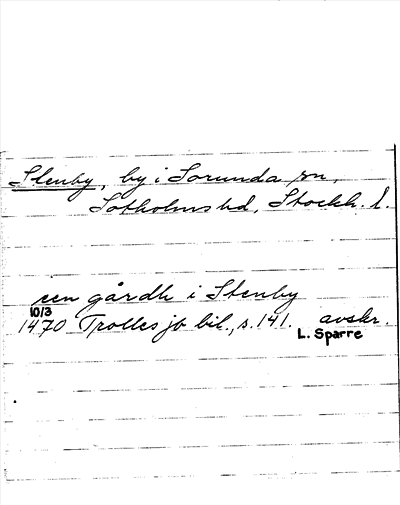 Stenby, by i Sorunda sn,
Sotholms hd, Stockh. l.
een gårdh i Stenby
10/3
1470 Trolles jb bil., s. 141. avskr.
L. Sparre